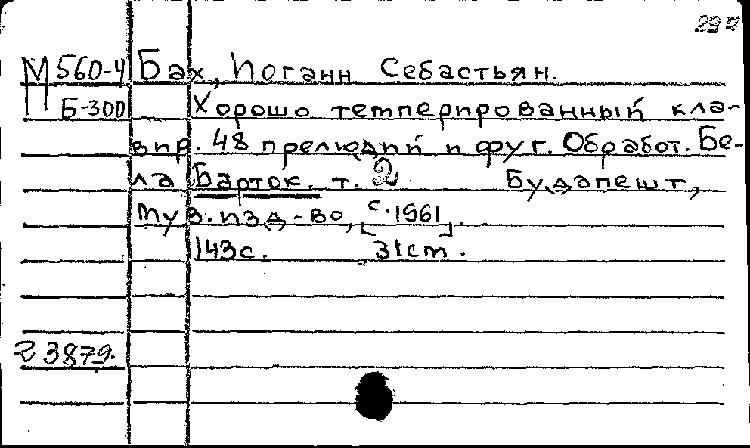 М 560-4 Бах, Иоганн Себастьян.
Б-300 Хорошо темперированный кла-
вир. 48 прелюдий и фуг. Обработ. Бе-
ла Барток. т. 2 Будапешт,
Муз. изд-во, [с.1961].
143с. 31см.
г 3879.